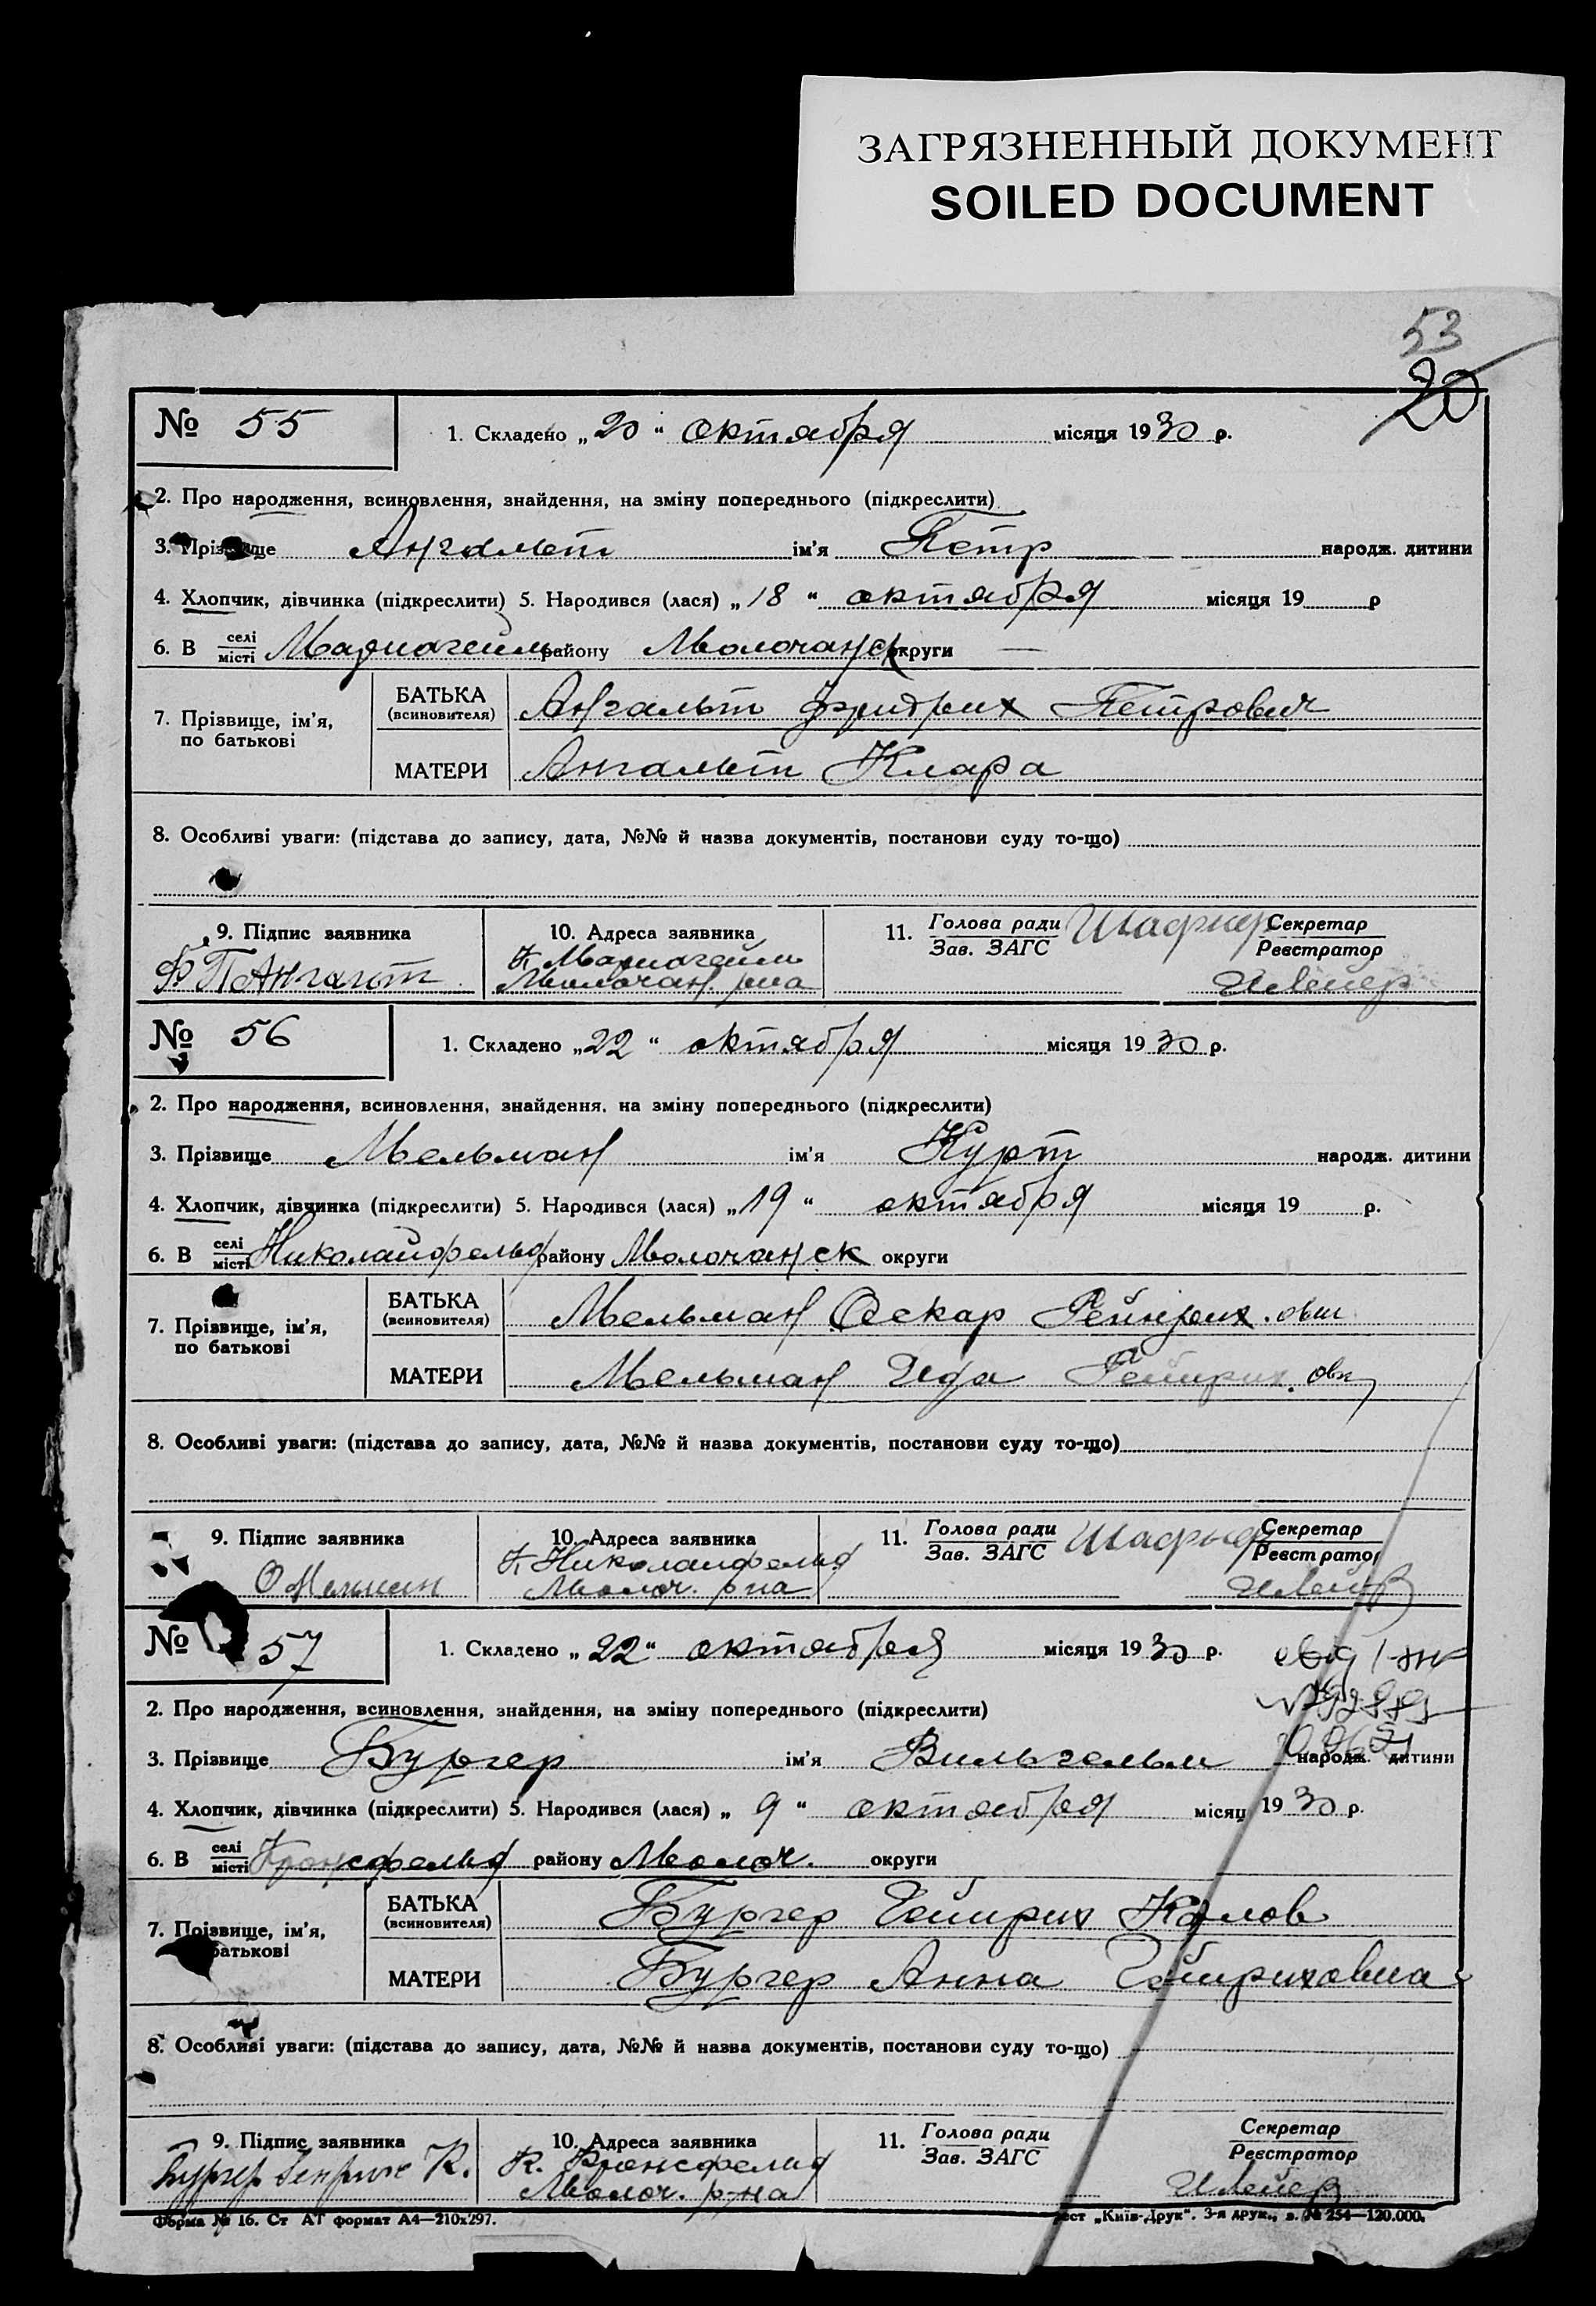 ЗАГРЯЗНЕННЫЙ ДОКУМЕНТ
SOILED DOCUMENT
53
20
№ 55 1. Складено „20“ октября місяця 1930 р.
2. Про народження, всиновлення, знайдення, на зміну попереднього (підкреслити)
3. Прізвище Ангальт ім'я Петр народж. дитини
4. Хлопчик, дівчинка (підкреслити) 5. Народився (лася) „18“ октября місяця 19 р
6. В селі/місті Мариагейм району Молочанск округи —
7. Прізвище, ім'я, по батькові
БАТЬКА (всиновителя) Ангальт Фридрих Петрович
МАТЕРИ Ангальт Клара
8. Особливі уваги: (підстава до запису, дата, №№ й назва документів, постанови суду то-що)
9. Підпис заявника 10. Адреса заявника 11. Голова ради Секретар
Зав. ЗАГС Реєстратор
Ф П Ангальт К. Мариагейм
Молочан. р-на
№ 56 1. Складено „22“ октября місяця 1930 р.
2. Про народження, всиновлення, знайдення, на зміну попереднього (підкреслити)
3. Прізвище Мельман ім'я Курт народж. дитини
4. Хлопчик, дівчинка (підкреслити) 5. Народився (лася) „19“ октября місяця 19 р.
6. В селі/місті Николайфельд району Молочанск округи
7. Прізвище, ім'я, по батькові
БАТЬКА (всиновителя) Мельман Оскар Гейнрих.ович
МАТЕРИ Мельман Ида Гейнрих. овн
8. Особливі уваги: (підстава до запису, дата, №№ й назва документів, постанови суду то-що)
9. Підпис заявника 10. Адреса заявника 11. Голова ради Секретар
Зав. ЗАГС Реєстратор
О Мельман К. Николайфельд
Молоч. р-на
№ 57 1. Складено „22“ октября місяця 1930 р.
2. Про народження, всиновлення, знайдення, на зміну попереднього (підкреслити)
3. Прізвище Бургер ім'я Вильгельм народж. дитини
4. Хлопчик, дівчинка (підкреслити) 5. Народився (лася) „9“ октября місяц 1930 р.
6. В селі/місті Кронсфельд району Молоч. округи
7. Прізвище, ім'я, батькові
БАТЬКА (всиновителя) Бургер Гейнрих
МАТЕРИ Бургер Анна Гейнриховна
8. Особливі уваги: (підстава до запису, дата, №№ й назва документів, постанови суду то-що)
9. Підпис заявника 10. Адреса заявника 11. Голова ради Секретар
Зав. ЗАГС Реєстратор
Бургер Генрих К. К. Кронсфельд
Молоч. р-на
Форма № 16. Ст АТ формат А4—210x297. ест „Київ-Друк“. 3-я друк., з. № 254—120.000.